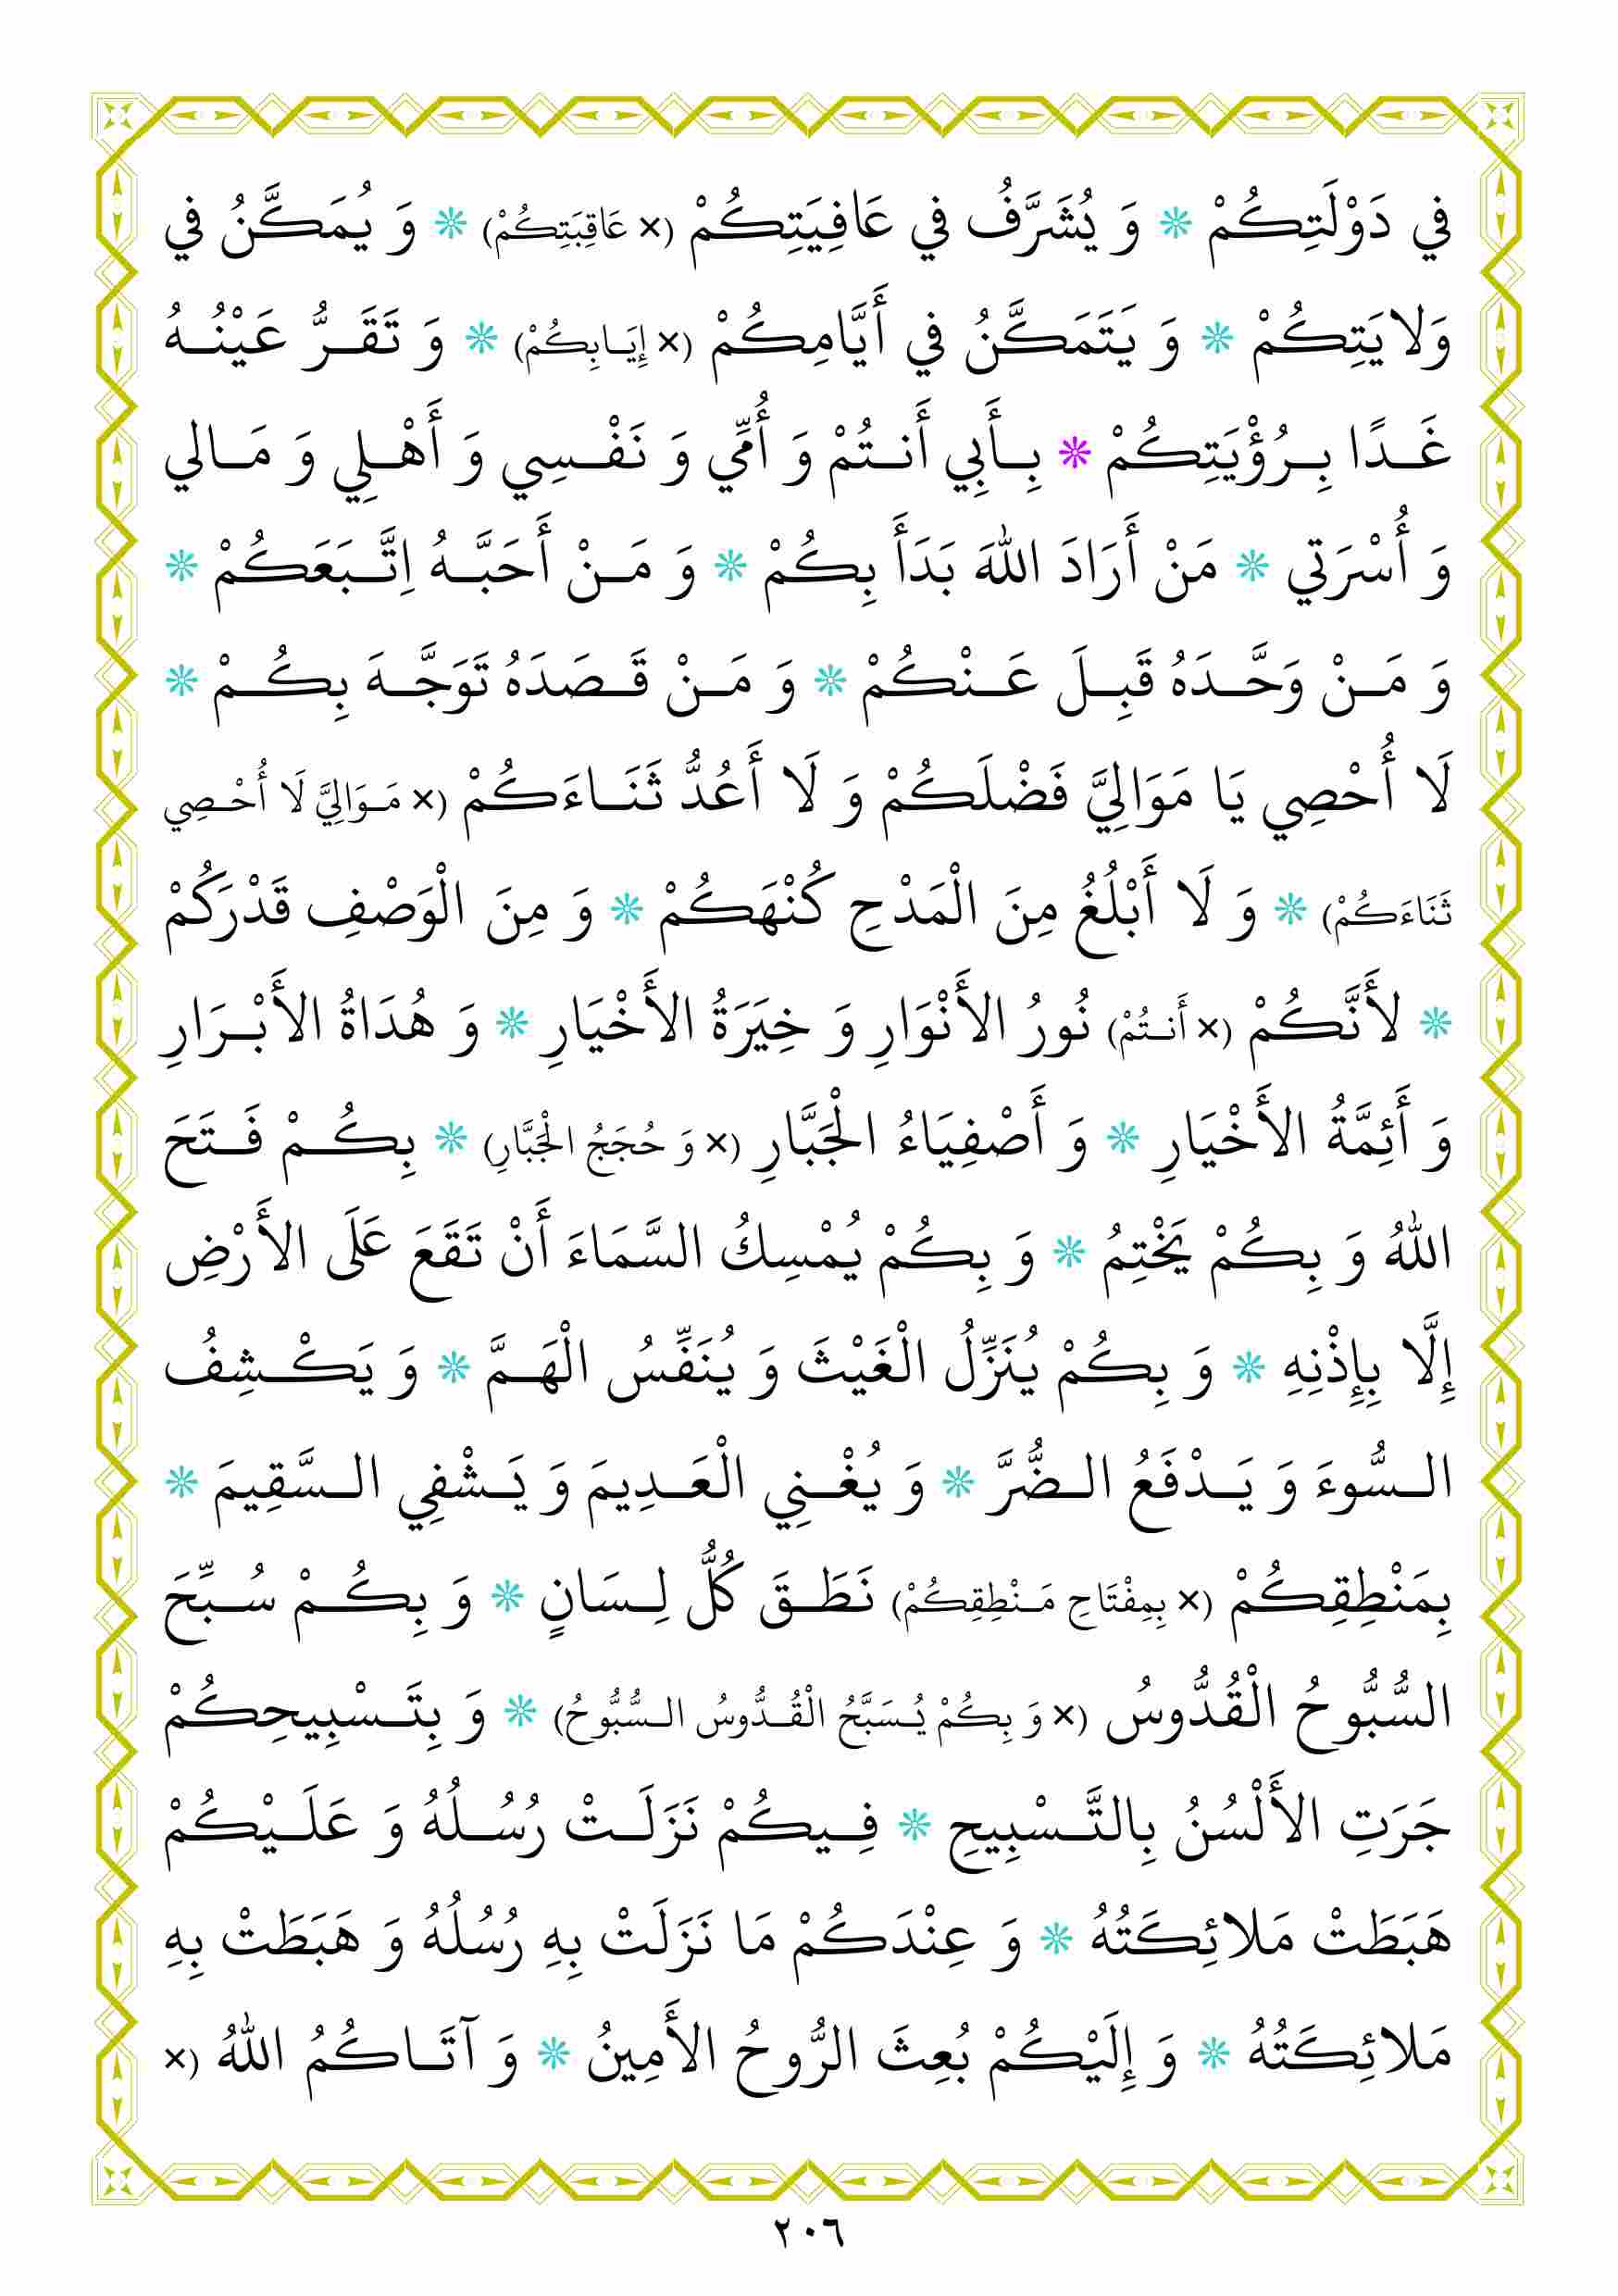 في دَوْلَتِكُمْ * وَ يُشَرَّفُ في عَافِيَتِكُمْ (× عَاقِبَتِكُمْ) * وَ يُمَكَّنُ في
وَلايَتِكُمْ * وَ يَتَمَكَّنُ في أَيَّامِكُمْ (× إِيَابِكُمْ) * وَ تَقَرُّ عَيْنُهُ
غَدًا بِرُؤْيَتِكُمْ * بِأَبِي أَنتُمْ وَ أُمِّي وَ نَفْسِي وَ أَهْلِي وَ مَالي
وَ أُسْرَتي * مَنْ أَرَادَ اللهَ بَدَأَ بِكُمْ * وَ مَنْ أَحَبَّهُ اِتَّبَعَكُمْ *
وَ مَنْ وَحَّدَهُ قَبِلَ عَنْكُمْ * وَ مَنْ قَصَدَهُ تَوَجَّهَ بِكُمْ *
لَا أُحْصِي يَا مَوَالِيَّ فَضْلَكُمْ وَ لَا أَعُدُّ ثَنَاءَكُمْ (× مَوَالِيَّ لَا أُحْصِي
ثَنَاءَكُمْ) * وَ لَا أَبْلُغُ مِنَ الْمَدْحِ كُنْهَكُمْ * وَ مِنَ الْوَصْفِ قَدْرَكُمْ
* لأَنَّكُمْ (× أَنتُمْ) نُورُ الأَنْوَارِ وَ خِيَرَةُ الأَخْيَارِ * وَ هُدَاةُ الأَبْرَارِ
وَ أَئِمَّةُ الأَخْيَارِ * وَ أَصْفِيَاءُ الْجَبَّارِ (× وَ حُجَجُ الْجَبَّارِ) * بِكُمْ فَتَحَ
اللهُ وَ بِكُمْ يَخْتِمُ * وَ بِكُمْ يُمْسِكُ السَّمَاءَ أَنْ تَقَعَ عَلَى الأَرْضِ
إِلَّا بِإِذْنِهِ * وَ بِكُمْ يُنَزِّلُ الْغَيْثَ وَ يُنَفِّسُ الْهَمَّ * وَ يَكْشِفُ
السُّوءَ وَ يَدْفَعُ الضُّرَّ * وَ يُغْنِي الْعَدِيمَ وَ يَشْفِي السَّقِيمَ *
بِمَنْطِقِكُمْ (× بِمِفْتَاحِ مَنْطِقِكُمْ) نَطَقَ كُلُّ لِسَانٍ * وَ بِكُمْ سُبِّحَ
السُّبُّوحُ الْقُدُّوسُ (× وَ بِكُمْ يُسَبَّحُ الْقُدُّوسُ السُّبُّوحُ) * وَ بِتَسْبِيحِكُمْ
جَرَتِ الأَلْسُنُ بِالتَّسْبِيحِ * فِيكُمْ نَزَلَتْ رُسُلُهُ وَ عَلَيْكُمْ
هَبَطَتْ مَلائِكَتُهُ * وَ عِنْدَكُمْ مَا نَزَلَتْ بِهِ رُسُلُهُ وَ هَبَطَتْ بِهِ
مَلائِكَتُهُ * وَ إِلَيْكُمْ بُعِثَ الرُّوحُ الأَمِينُ * وَ آتَاكُمُ اللهُ (×
٢٠٦